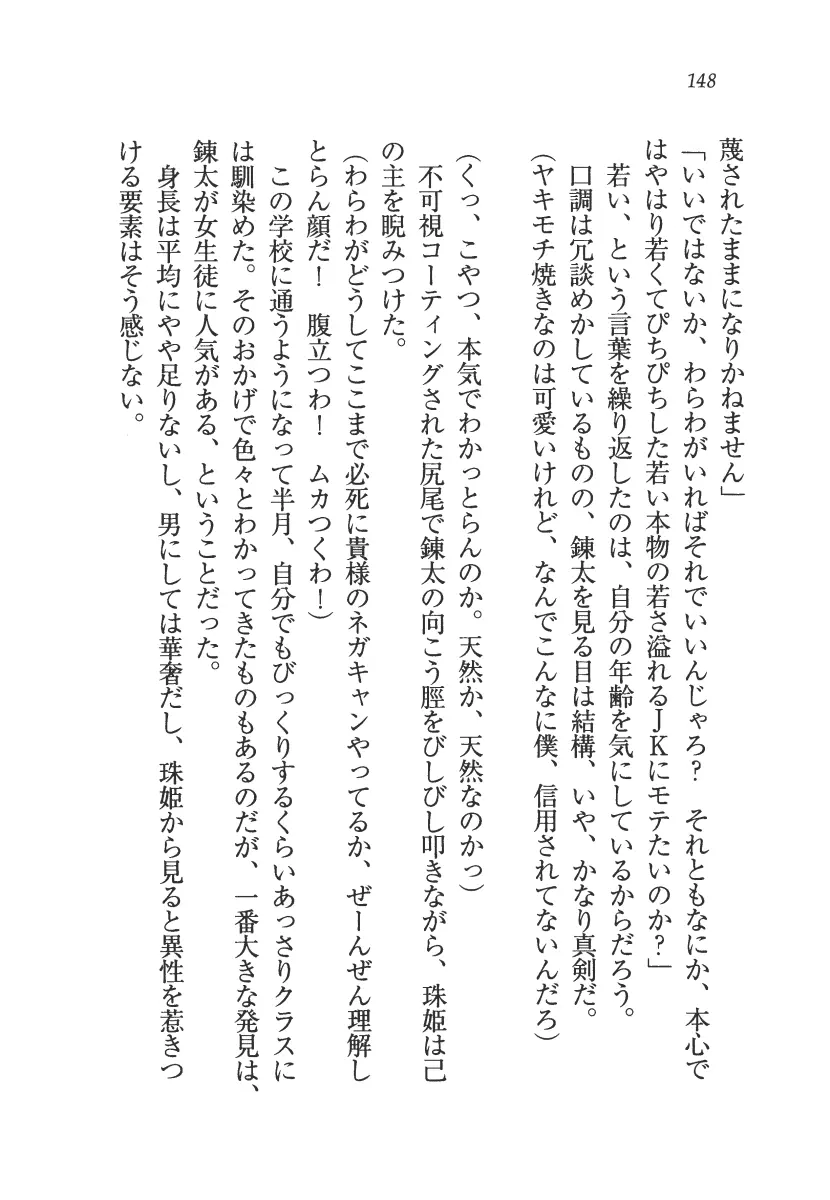 148
蔑されたままになりかねません」
「いいではないか、わらわがいればそれでいいんじゃろ？　それともなにか、本心で
はやはり若くてぴちぴちした若い本物の若さ溢れるＪＫにモテたいのか？」
　若い、という言葉を繰り返したのは、自分の年齢を気にしているからだろう。
　口調は冗談めかしているものの、錬太を見る目は結構、いや、かなり真剣だ。
（ヤキモチ焼きなのは可愛いけれど、なんでこんなに僕、信用されてないんだろ）
（くっ、こやつ、本気でわかっとらんのか。天然か、天然なのかっ）
　不可視コーティングされた尻尾で錬太の向こう脛をびしびし叩きながら、珠姫は己
の主を睨みつけた。
（わらわがどうしてここまで必死に貴様のネガキャンやってるか、ぜーんぜん理解し
とらん顔だ！　腹立つわ！　ムカつくわ！）
　この学校に通うようになって半月、自分でもびっくりするくらいあっさりクラスに
は馴染めた。そのおかげで色々とわかってきたものもあるのだが、一番大きな発見は、
錬太が女生徒に人気がある、ということだった。
　身長は平均にやや足りないし、男にしては華奢だし、珠姫から見ると異性を惹きつ
ける要素はそう感じない。